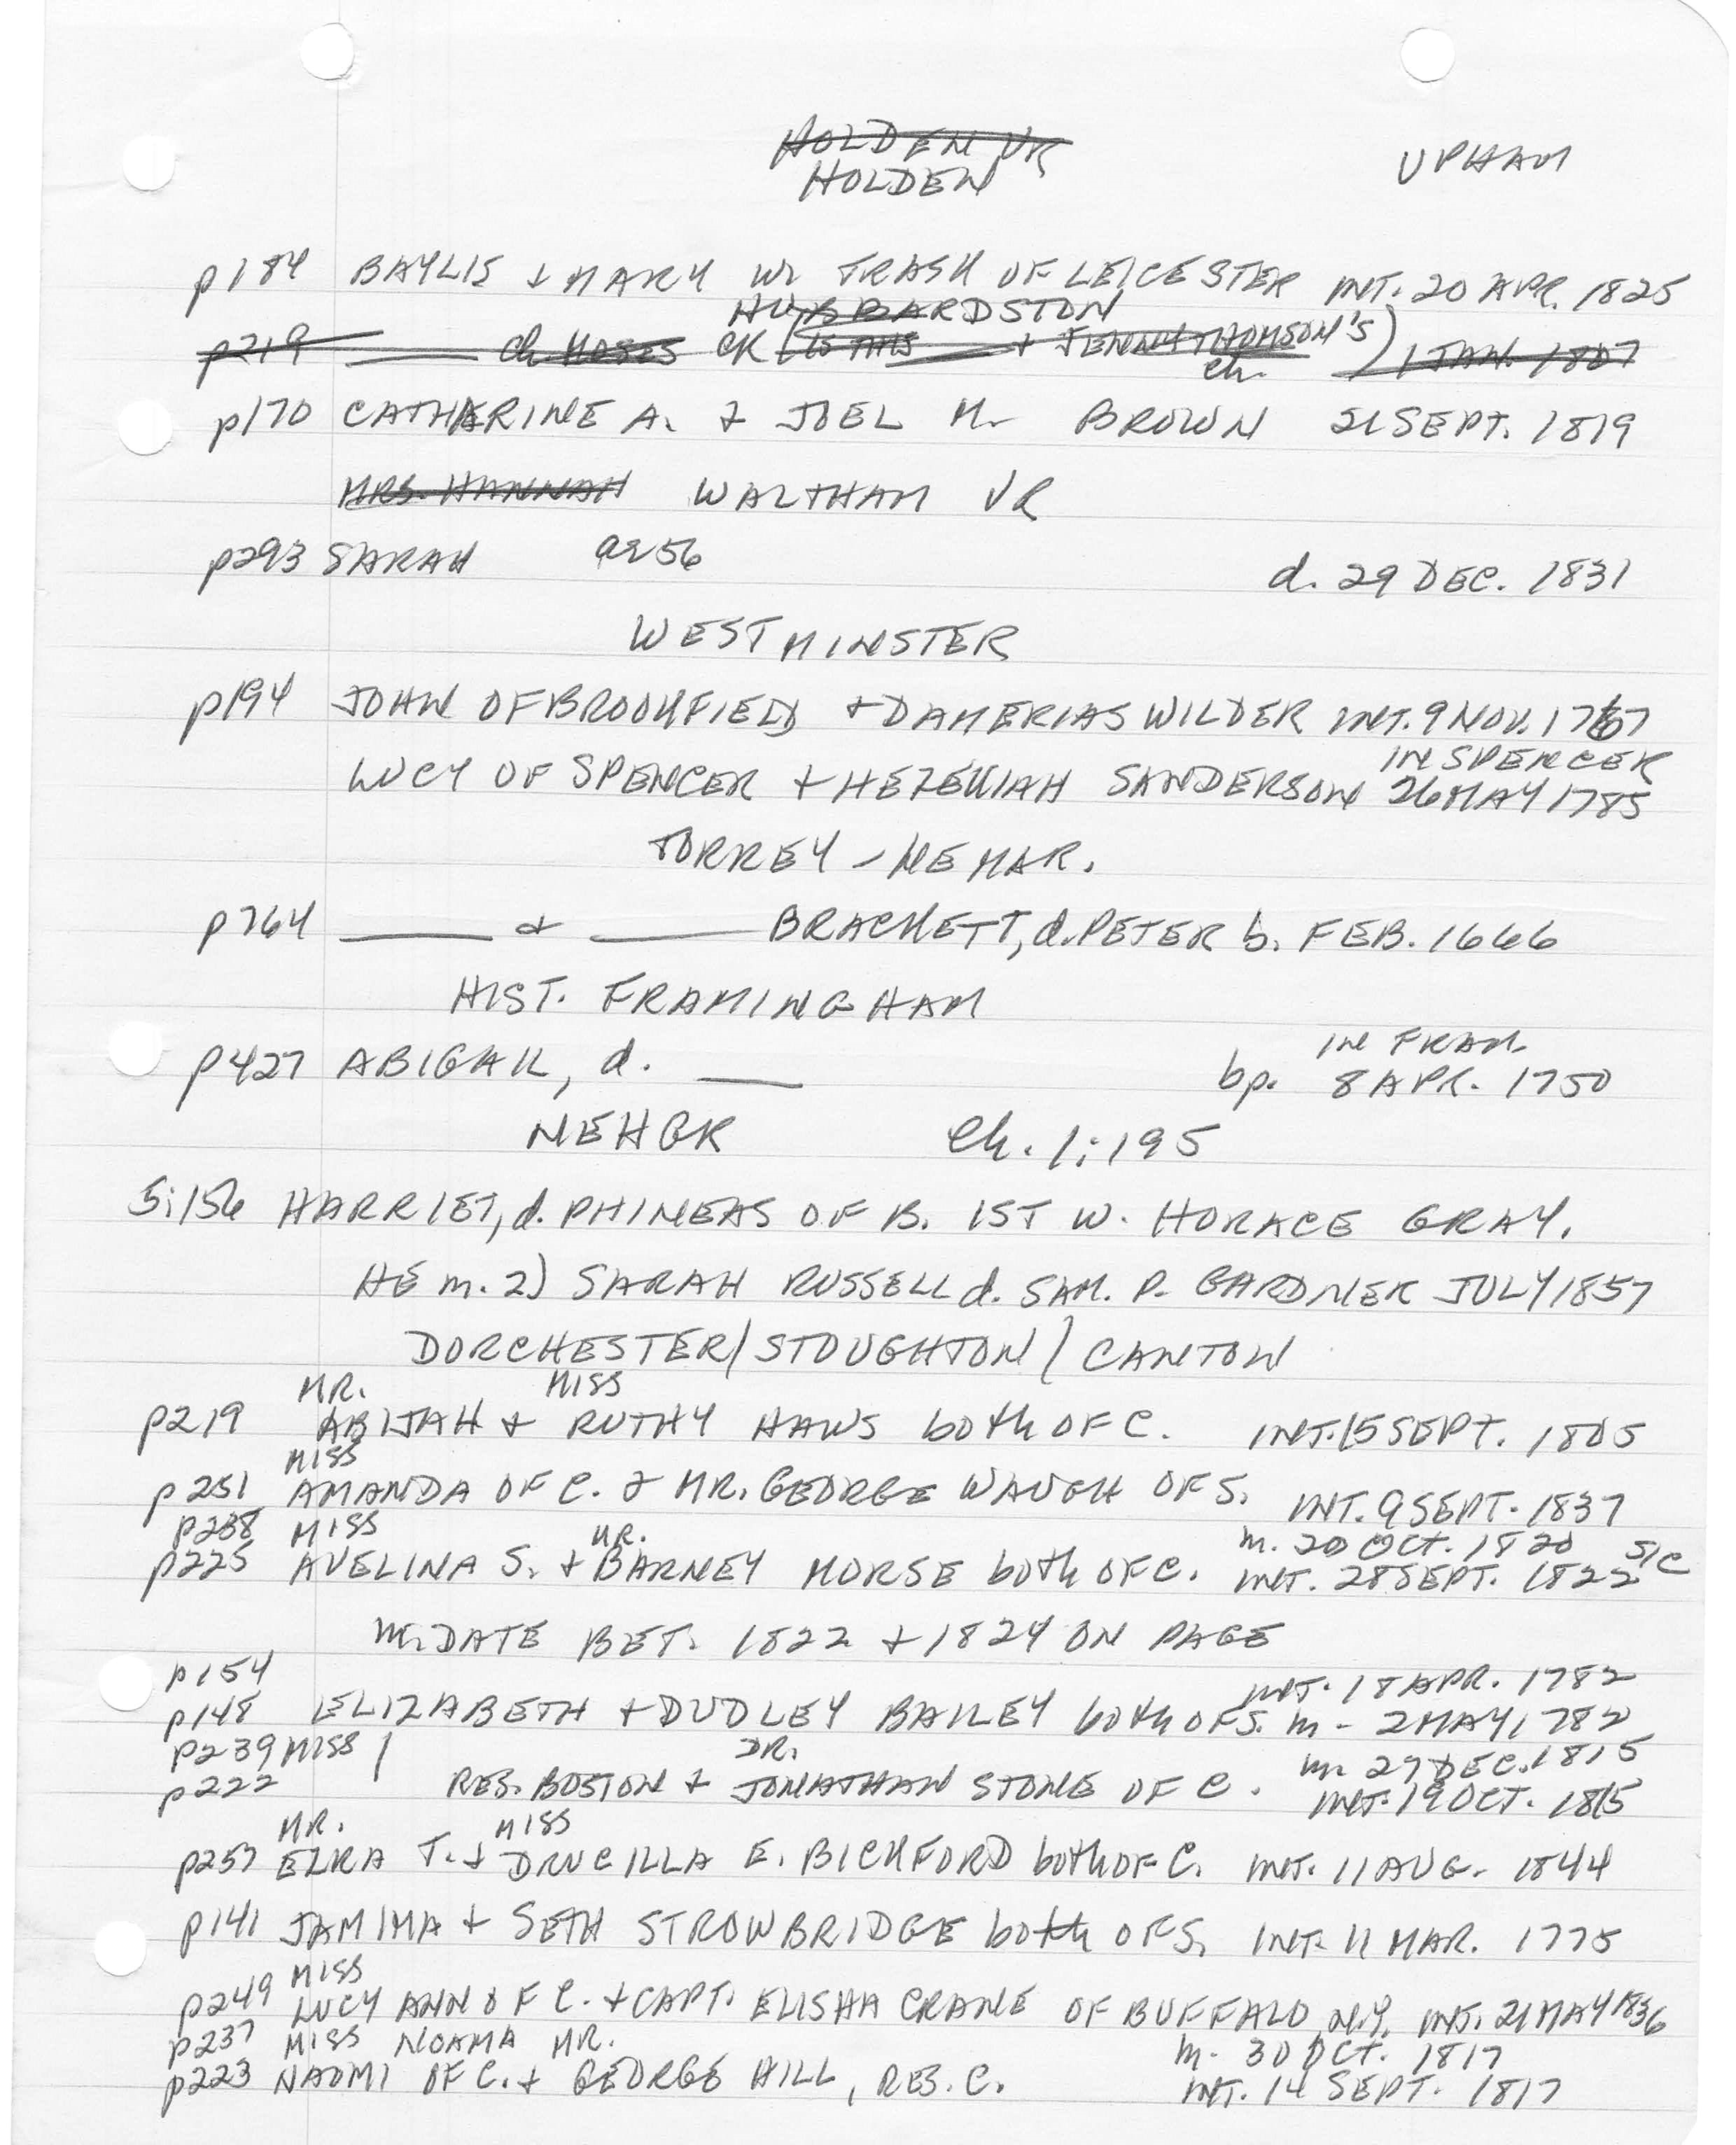 HOLDEN VR
HOLDEN
UPHAM
p184 BAYLIS + MARY W. TRASK OF LEICESTER INT. 20 APR. 1825
HUBBARDSTON
p219 ____ ch MOSES CK (IS THIS ____ + JENNY THOMSON'S ch.) 1 JAN. 1807
p170 CATHARINE A. + JOEL H. BROWN 21 SEPT. 1819
MRS. HANNAH WALTHAM VR
p293 SARAH ae 56 d. 29 DEC. 1831
WESTMINSTER
p194 JOHN OF BROOKFIELD + DAMERIAS WILDER INT. 9 NOV. 1767
IN SPENCER
LUCY OF SPENCER + HEZEKIAH SANDERSON 26 MAY 1785
TORREY - NE MAR.
p764 ____ + ____ BRACKETT, d. PETER b. FEB. 1666
HIST. FRAMINGHAM
IN FRAM.
p427 ABIGAIL, d. ____ bp. 8 APR. 1750
NEHGR Ch. 1:195
5:156 HARRIET, d. PHINEAS OF B. 1ST W. HORACE GRAY.
HE m. 2) SARAH RUSSELL d. SAM. P. GARDNER JULY 1857
DORCHESTER/STOUGHTON/CANTON
MR. MISS
p219 ABIJAH + RUTHY HAWS both OF C. INT. 15 SEPT. 1805
MISS
p251 AMANDA OF C. + MR. GEORGE WAUGH OF S. INT. 9 SEPT. 1837
p238 MISS MR. m. 20 OCT. 1820 SIC
p225 AVELINA S. + BARNEY MORSE both OF C. INT. 28 SEPT. 1822
m. DATE BET. 1822 + 1824 ON PAGE
p154 INT. 18 APR. 1782
p148 ELIZABETH + DUDLEY BAILEY both OF S. m - 2 MAY 1782
p239 MISS / DR. m. 27 DEC. 1815
p222 RES. BOSTON + JONATHAN STONE OF C. INT. 19 OCT. 1815
MR. MISS
p257 EZRA T. + DRUCILLA E. BICKFORD both OF C. INT. 11 AUG. 1844
p141 JAMIMA + SETH STROWBRIDGE both OF S. INT. 11 MAR. 1775
MISS
p249 LUCY ANN OF C. + CAPT. ELISHA CRANE OF BUFFALO N.Y. INT. 21 MAY 1836
p237 MISS NOAMA MR. m. 30 OCT. 1817
p223 NAOMI OF C. + GEORGE HILL, RES. C. INT. 14 SEPT. 1817